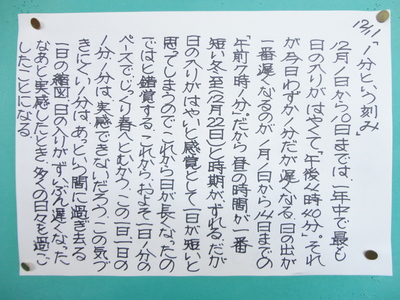 12/11「1分という刻み」
12月1日から10日までは、一年中で最も
日の入りがはやくて、「午後4時40分」。それ
が今日わずか1分だが遅くなる。日の出が
一番遅くなるのが1月1日から14日までの
「午前7時1分」。だから昼の時間が一番
短い冬至(12月22日)と時期がずれる。だが
日の入りがはやいと感覚として一日が短いと
思ってしまうので、これから日が長くなったの
ではと錯覚する。これから、およそ一日1分の
ペースでじっくり春へとむかう。この一日一日の
1分1分は実感できないだろう。この気づ
きにくい1分は、あっという間に過ぎ去る
一日の縮図。日の入りがずいぶん遅くなった
なあと実感したとき、多くの日々を過ご
したことになる。